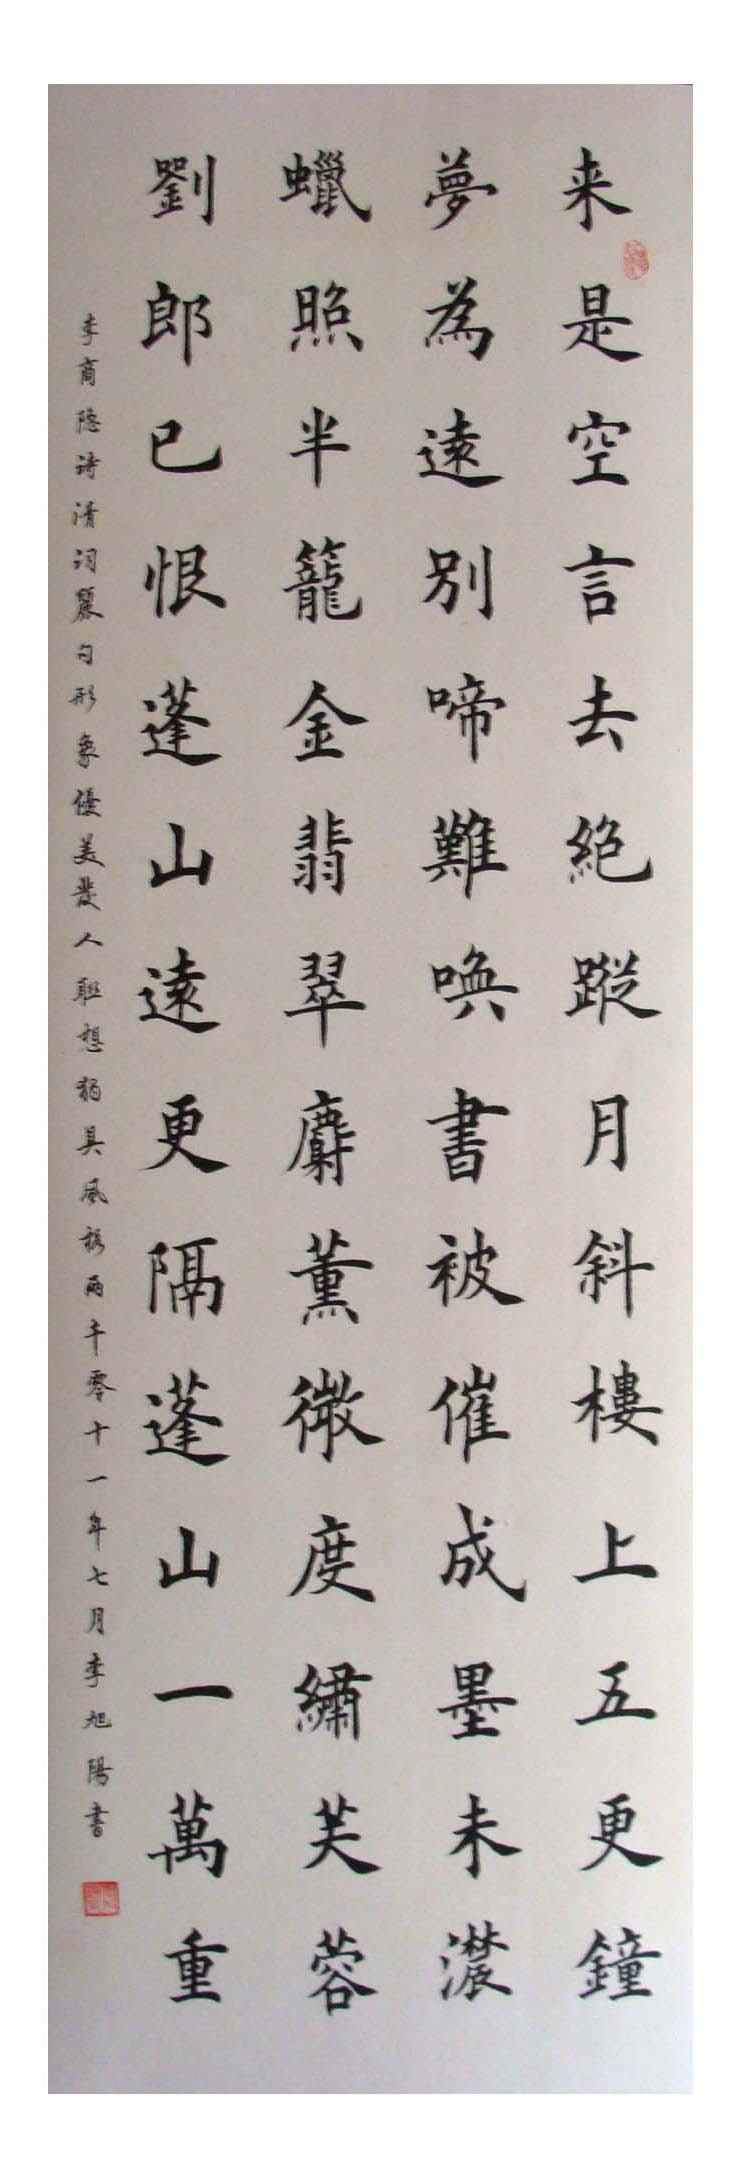 来是空言去絕蹤月斜樓上五更鐘
夢為遠別啼難喚書被催成墨未濃
蠟照半籠金翡翠麝薰微度繡芙蓉
劉郎已恨蓬山遠更隔蓬山一萬重
李商隐詩清詞麗句形象優美發人聯想獨具風格兩千零十一年七月李旭陽書